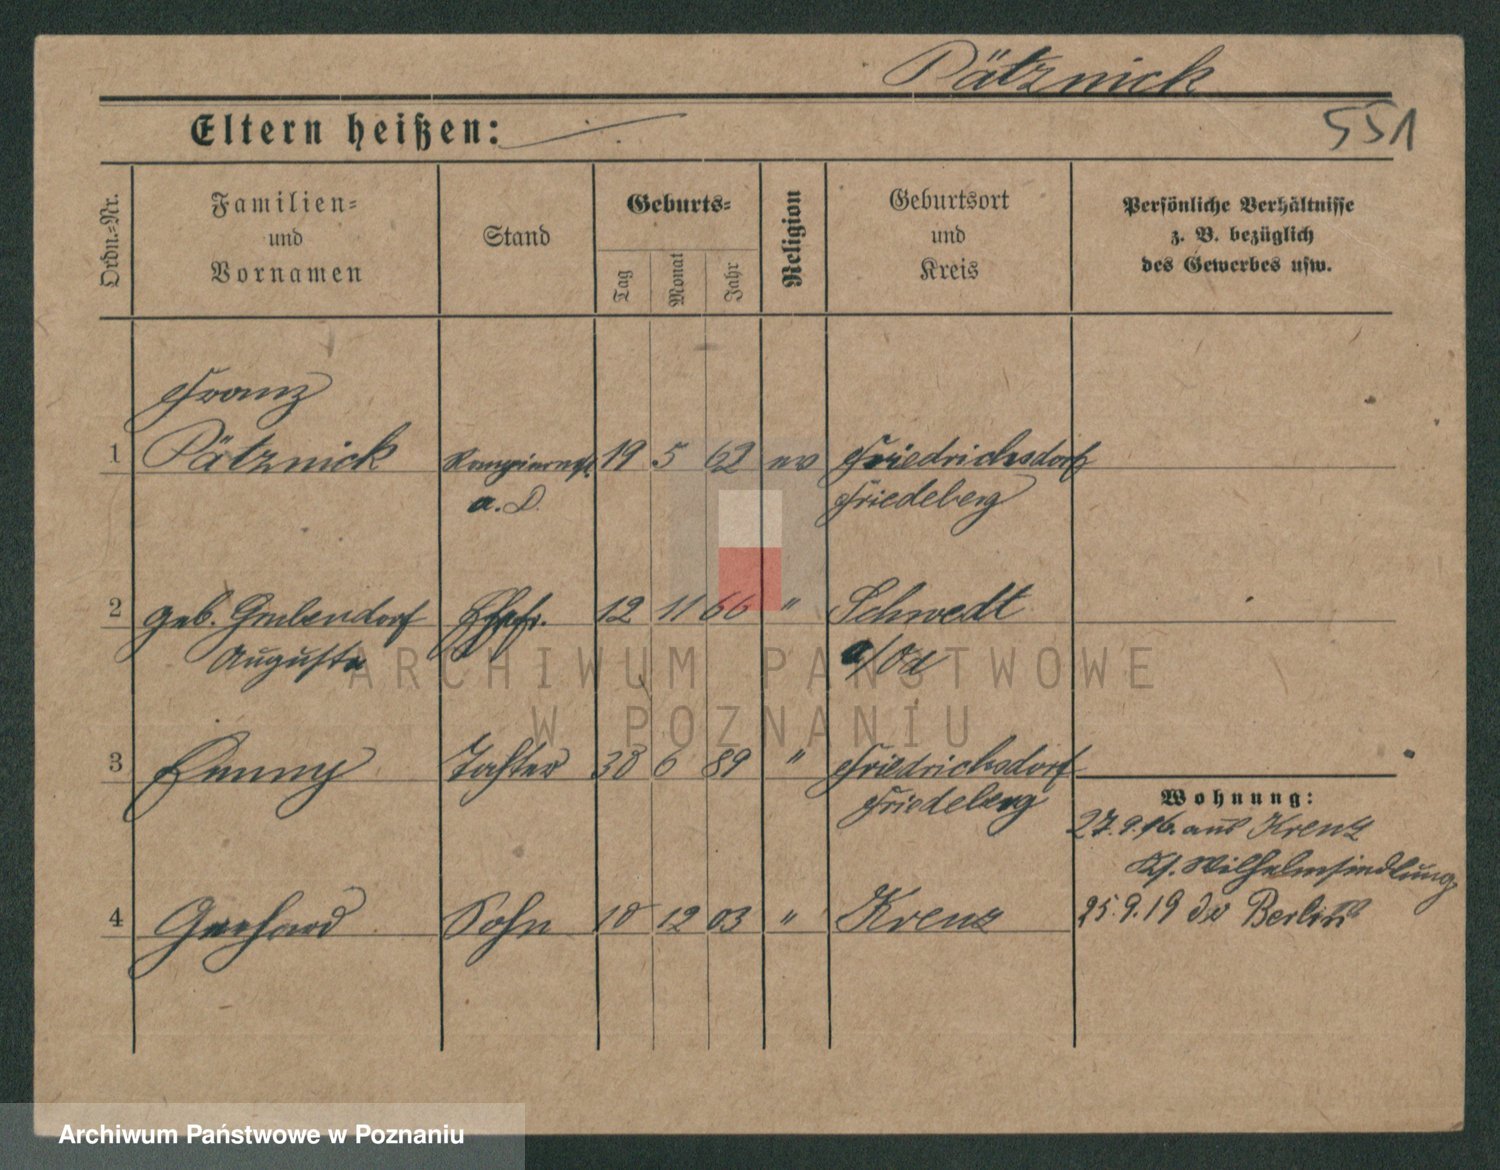 Pätznick
Eltern heißen:
551
Ordn.=Nr.
Familien=
und
Vornamen
Stand
Geburts=
Tag
Monat
Jahr
Religion
Geburtsort
und
Kreis
Persönliche Verhältnisse
z. B. bezüglich
des Gewerbes usw.
Franz
1 Pätznick 19 5 62 ev Friedrichsdorf
a. D. Friedeberg
2 geb. Ehefr. 12 11 66 " Schwedt
Auguste a/Od
ARCHIWUM PAŃSTWOWE
W POZNANIU
3 Tochter 30 6 89 " Friedrichsdorf
Friedeberg
Wohnung:
27.9.16. aus Krenz
Wilhelmsiedlung
4 Gerhard Sohn 10 12 03 " Krenz
25.9.19 Berlin
Archiwum Państwowe w Poznaniu